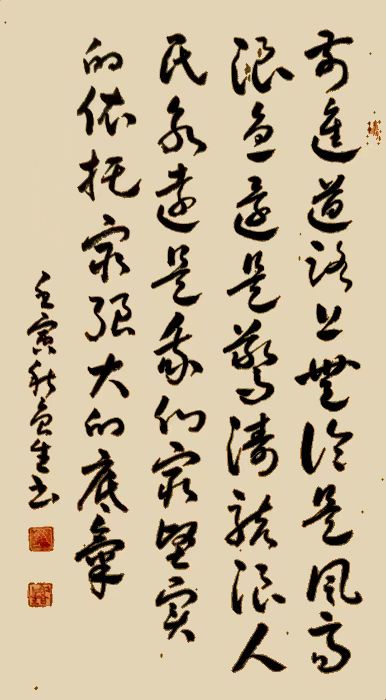 前進道路上無論是風高
浪急還是驚濤駭浪人
民永遠是我們最堅实
的依托最强大的底氣
壬寅秋 生书